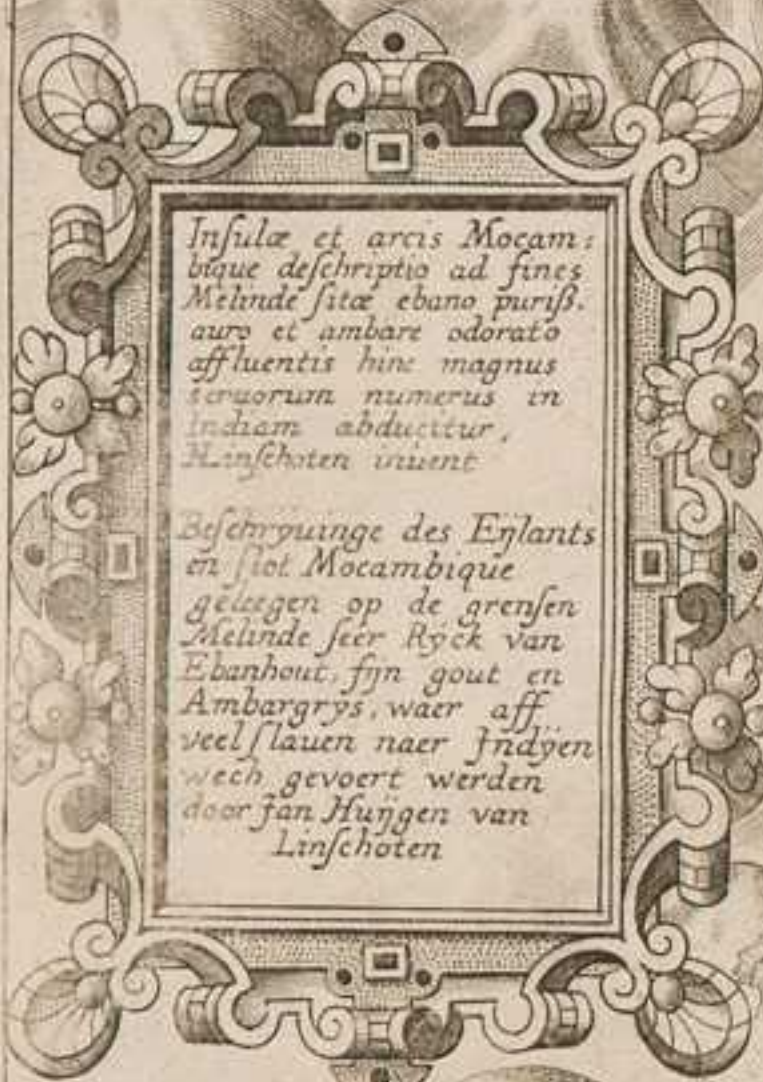 Inſulæ et arcis Mocam:
bique deſchriptio ad fines
Melinde ſitæ ebano puriß.
auro et ambare odorato
affluentis hinc magnus
seruorum numerus in
Indiam abducitur,
Linſchoten inuent

Beſchryuinge des Eijlants
en ſlot Mocambique
geleegen op de grenſen
Melinde ſeer Rÿck van
Ebanhout, fijn gout en
Ambargrys, waer aff
veel ſlauen naer Indÿen
wech gevoert werden
door Jan Huÿgen van
Linſchoten